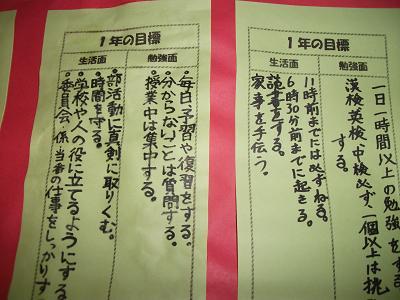 1年の目標
勉強面
一日一時間以上の勉強をする
漢検英検、中検必ず、一個以上は挑
する。
生活面
11時前までには必ずねる。
6時30分前までに起きる。
読書をする。
家事を手伝う。
1年の目標
勉強面
・毎日予習や復習をする。
・分からないことは質問する。
・授業中は集中する。
生活面
・部活動に真剣に取りくむ。
・時間を守る。
・学校や人の役に立てるようにする
・委員会、係、当番の仕事をしっかりす